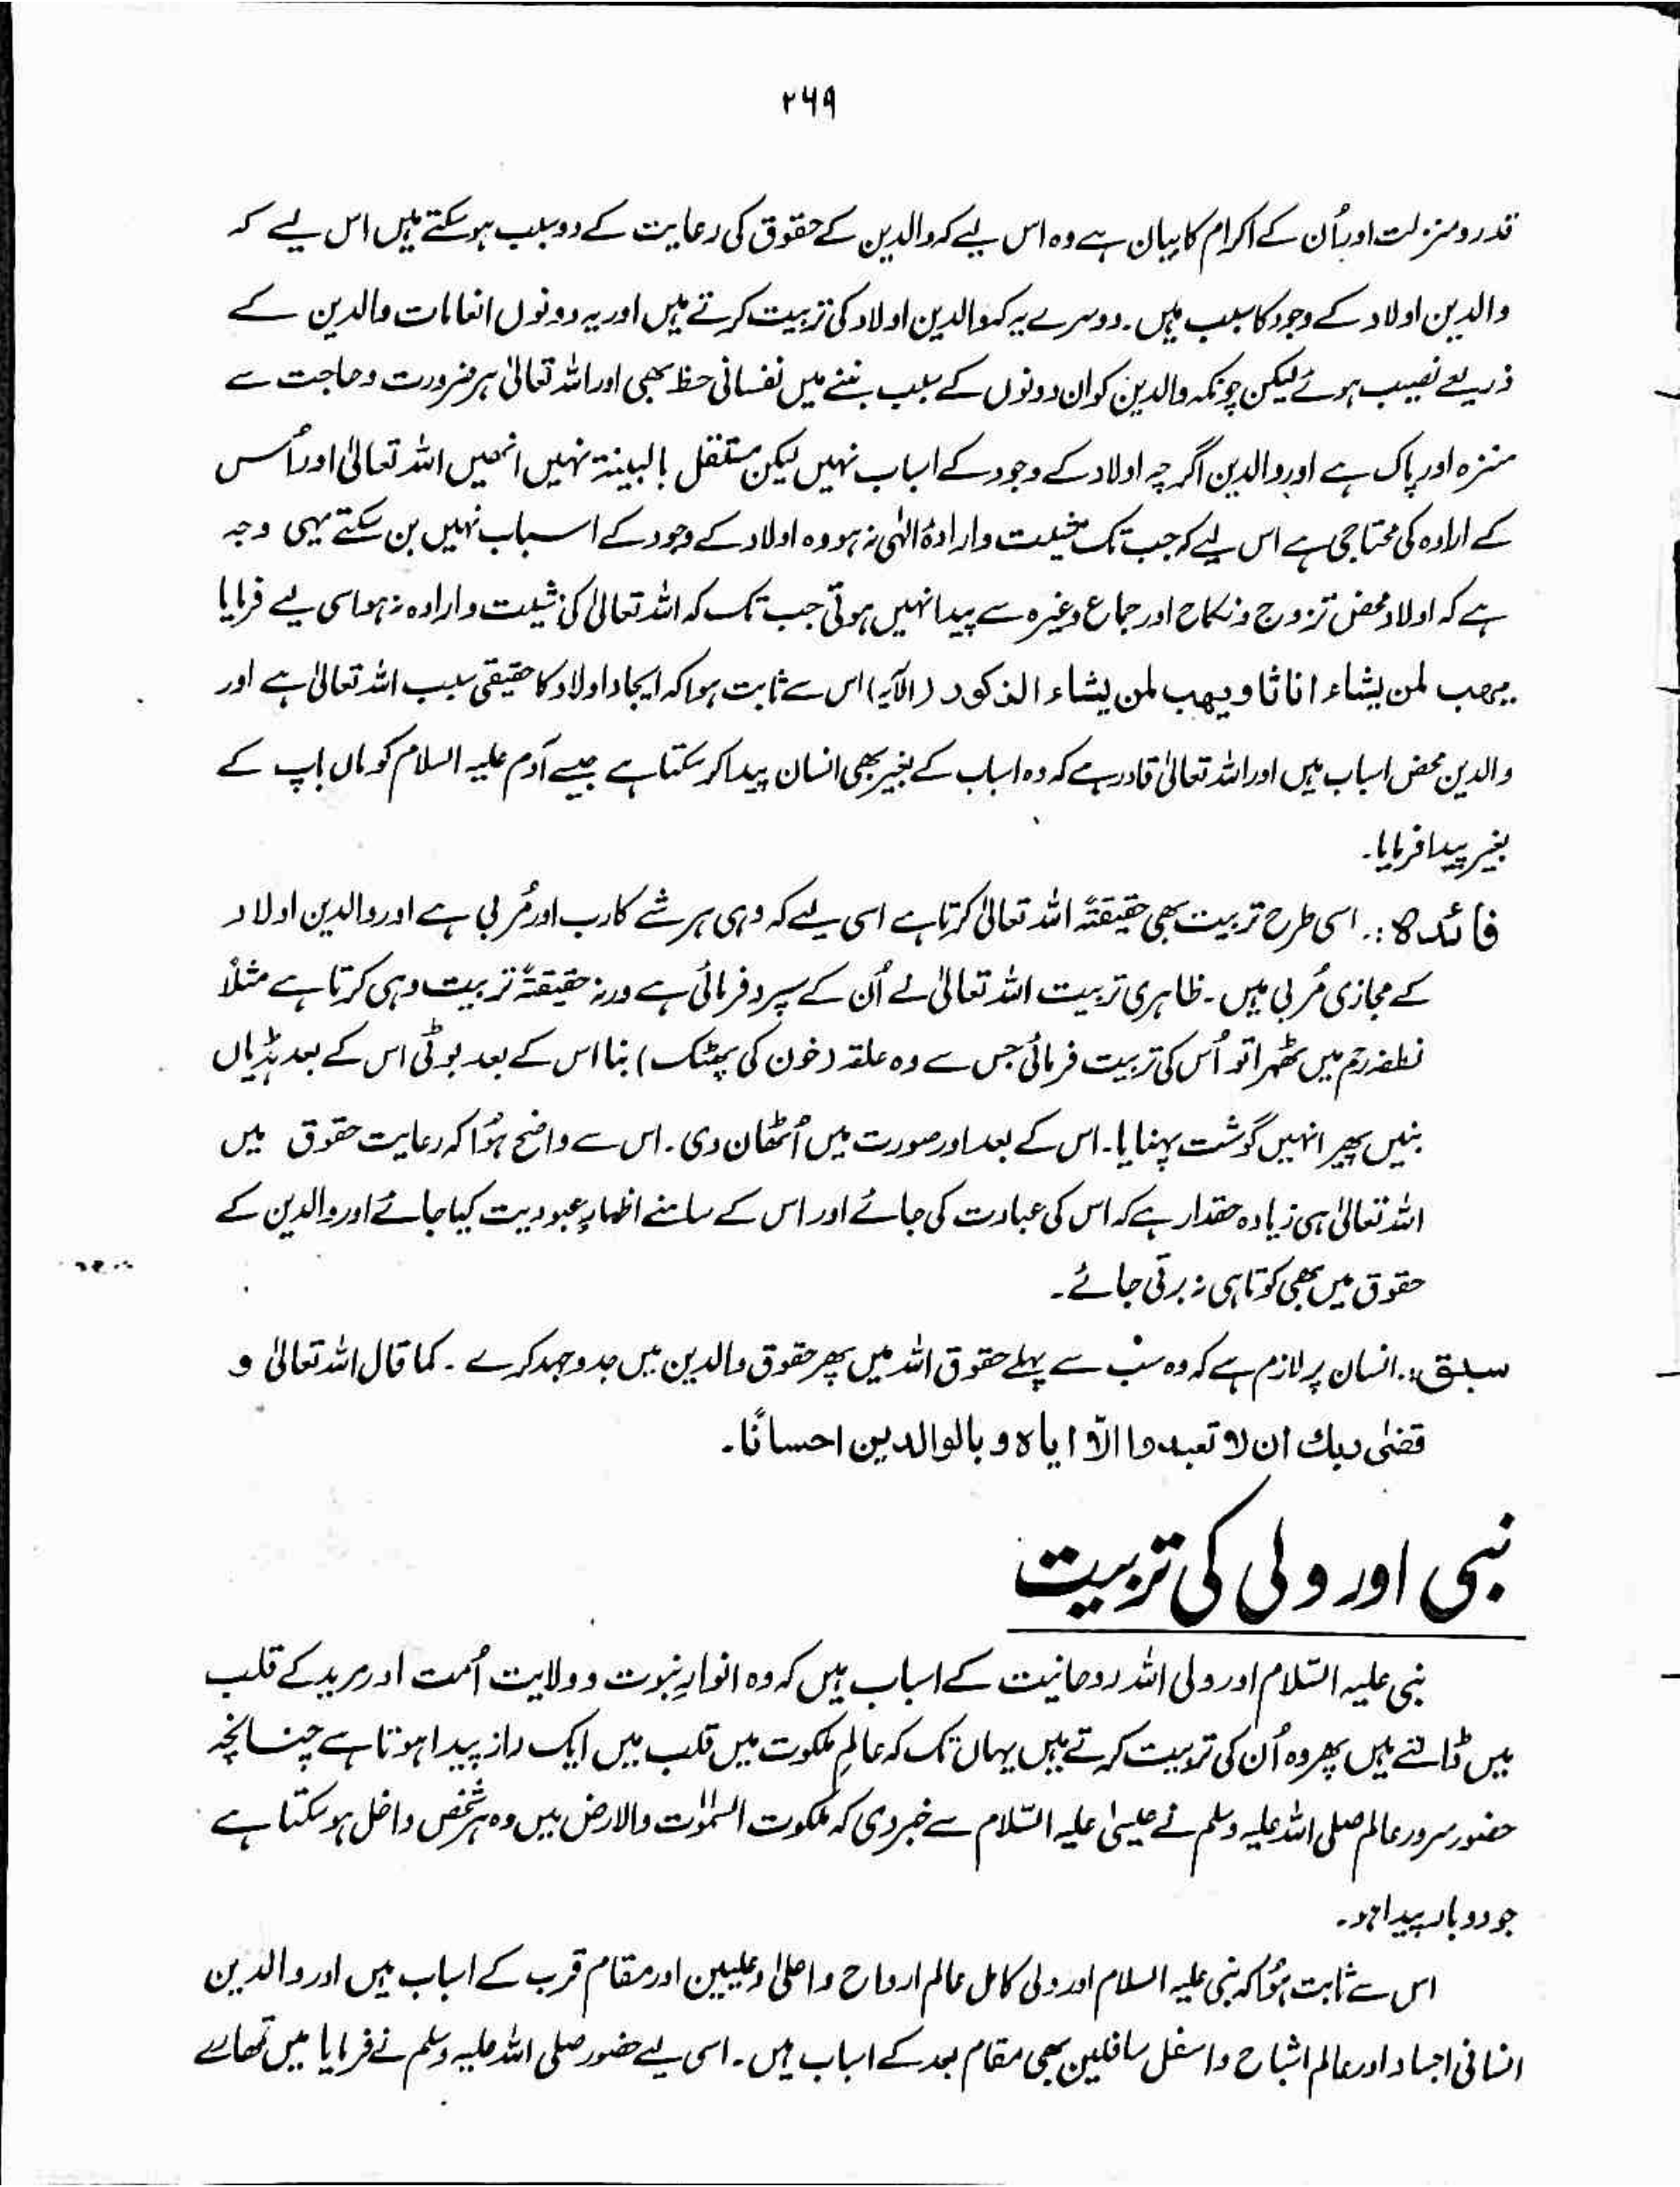 ۲۶۹
قدر و منزلت اور اُن کے اکرام کا بیان ہے وہ اس لیے کہ والدین کے حقوق کی رعایت کے دو سبب ہو سکتے ہیں اس لیے کہ
والدین اولاد کے وجود کا سبب ہیں۔ دوسرے یہ کہ والدین اولاد کی تربیت کرتے ہیں اور یہ دونوں انعامات والدین کے
ذریعے نصیب ہوئے لیکن چونکہ والدین کو ان دونوں کے سبب بننے میں نفسانی حظ بھی اور اللہ تعالیٰ ہر ضرورت و حاجت سے
منزہ اور پاک ہے اور والدین اگرچہ اولاد کے وجود کے اسباب نہیں لیکن مستقل بالبینۃ نہیں انھیں اللہ تعالیٰ اور اُس
کے ارادہ کی محتاجی ہے اس لیے کہ جب تک مشیت و ارادۂ الٰہی نہ ہو وہ اولاد کے وجود کے اسباب نہیں بن سکتے یہی وجہ
ہے کہ اولاد محض تزوج و نکاح اور جماع وغیرہ سے پیدا نہیں ہوتی جب تک کہ اللہ تعالیٰ کی مشیت و ارادہ نہ ہو اسی لیے فرمایا
یہب لمن یشاء اناثا و یھب لمن یشاء الذکور (الآیہ) اس سے ثابت ہوا کہ ایجاد اولاد کا حقیقی سبب اللہ تعالیٰ ہے اور
والدین محض اسباب ہیں اور اللہ تعالیٰ قادر ہے کہ وہ اسباب کے بغیر بھی انسان پیدا کر سکتا ہے جیسے آدم علیہ السلام کو ماں باپ کے
بغیر پیدا فرمایا۔
فائدہ:۔ اسی طرح تربیت بھی حقیقۃً اللہ تعالیٰ کرتا ہے اسی لیے کہ وہی ہر شے کا رب اور مُربی ہے اور والدین اولاد
کے مجازی مُربی ہیں۔ ظاہری تربیت اللہ تعالیٰ نے اُن کے سپرد فرمائی ہے ورنہ حقیقۃً تربیت وہی کرتا ہے مثلاً
نطفہ رحم میں ٹھہرا تو اُس کی تربیت فرمائی جس سے وہ علقہ (خون کی پھٹک) بنا اس کے بعد بوٹی اس کے بعد ہڈیاں
بنیں پھر انہیں گوشت پہنایا۔ اس کے بعد اور صورت میں اُٹھان دی۔ اس سے واضح ہُوا کہ رعایت حقوق میں
اللہ تعالیٰ ہی زیادہ حقدار ہے کہ اس کی عبادت کی جائے اور اس کے سامنے اظہارِ عبودیت کیا جائے اور والدین کے
حقوق میں بھی کوتاہی نہ برتی جائے۔
سبق:۔ انسان پر لازم ہے کہ وہ سب سے پہلے حقوق اللہ میں پھر حقوق والدین میں جدوجہد کرے۔ کما قال اللہ تعالیٰ و
قضٰی ربك ان لا تعبدوا الّا ایاہ و بالوالدین احسانًا۔
نبی اور ولی کی تربیت
نبی علیہ السّلام اور ولی اللہ روحانیت کے اسباب ہیں کہ وہ انوارِ نبوت و ولایت اُمت اور مرید کے قلب
میں ڈالتے ہیں پھر وہ اُن کی تربیت کرتے ہیں یہاں تک کہ عالمِ ملکوت میں قلب میں ایک راز پیدا ہوتا ہے چنانچہ
حضور سرور عالم صلی اللہ علیہ وسلم نے عیسیٰ علیہ السّلام سے خبر دی کہ ملکوت السمٰوٰت والارض میں وہ ہر شخص داخل ہو سکتا ہے
جو دوبار پیدا ہو۔
اس سے ثابت ہُوا کہ نبی علیہ السلام اور ولی کامل عالم ارواح و اعلیٰ و علیین اور مقام قرب کے اسباب ہیں اور والدین
انسانی اجساد اور عالم اشباح و اسفل سافلین بھی مقام بعد کے اسباب ہیں۔ اسی لیے حضور صلی اللہ علیہ وسلم نے فرمایا میں تمھارے